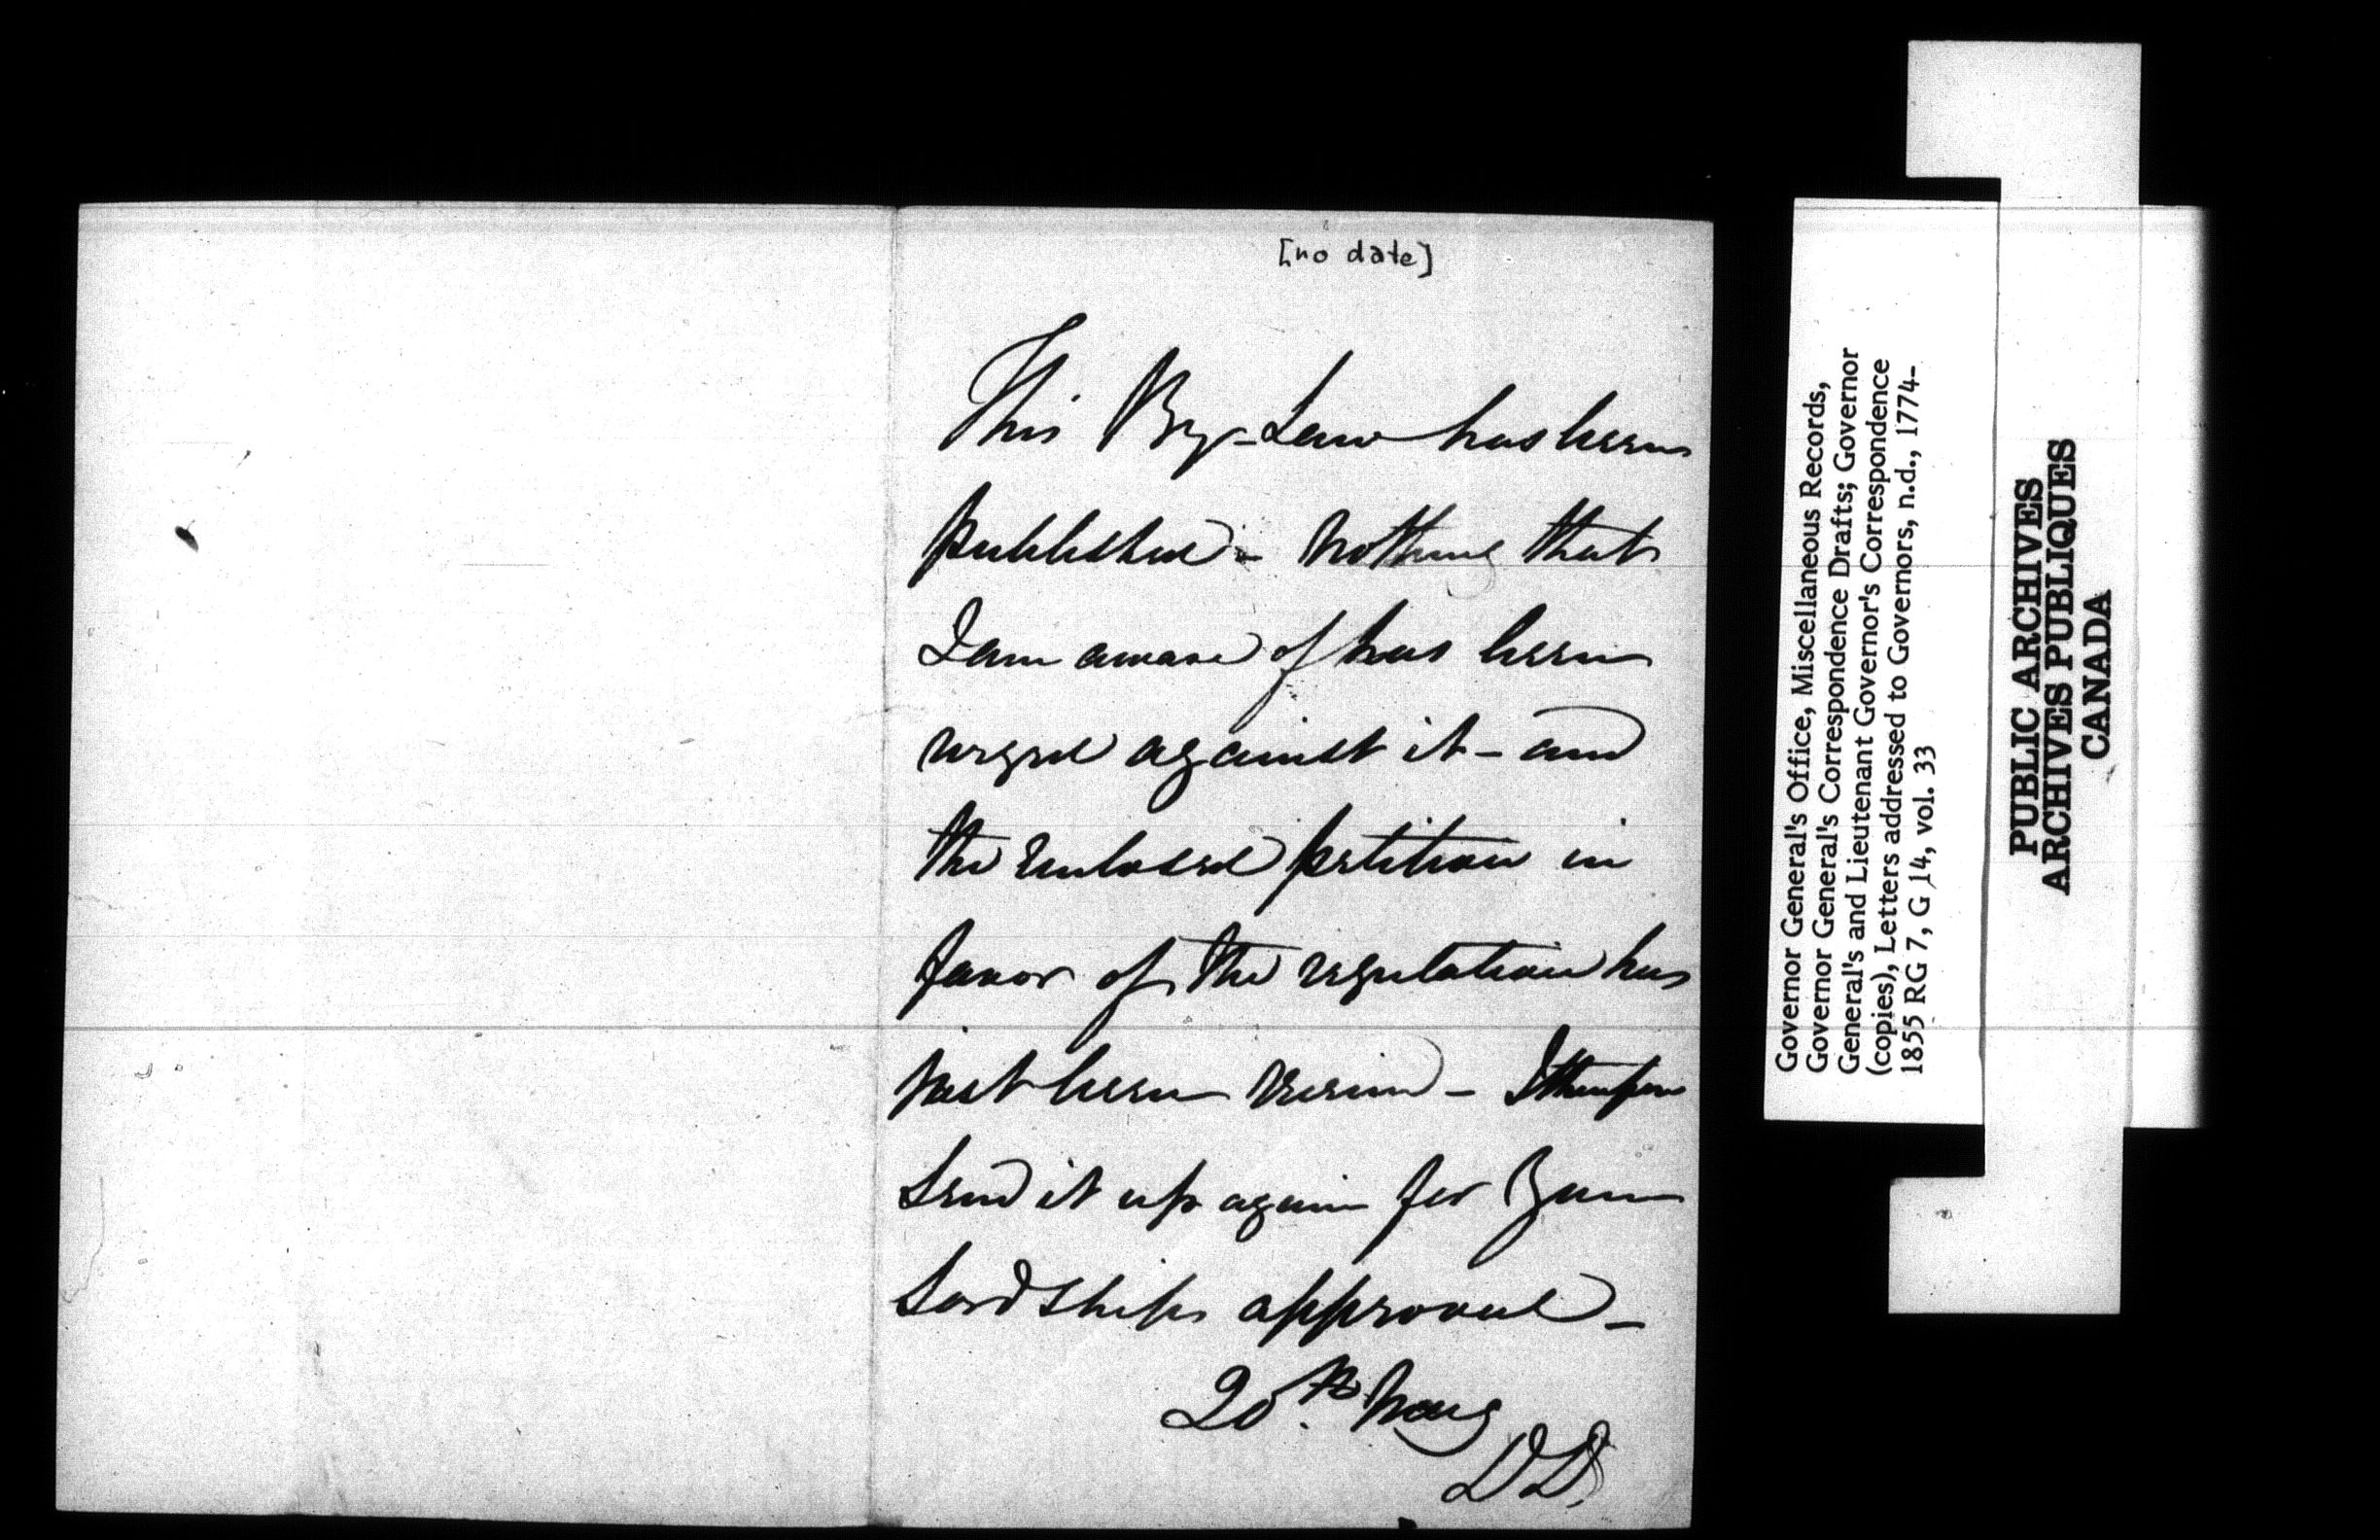 [no date]
This By-Law has been
published - Nothing that
I am aware of has been
urged against it - and
the enclosed petition in
favor of the regulation has
just been received - I therefore
send it up again for Your
Lordships approval -
20th May
DD.
Governor General's Office, Miscellaneous Records,
Governor General's Correspondence Drafts; Governor
General's and Lieutenant Governor's Correspondence
(copies), Letters addressed to Governors, n.d., 1774-
1855 RG 7, G 14, vol. 33
PUBLIC ARCHIVES
ARCHIVES PUBLIQUES
CANADA